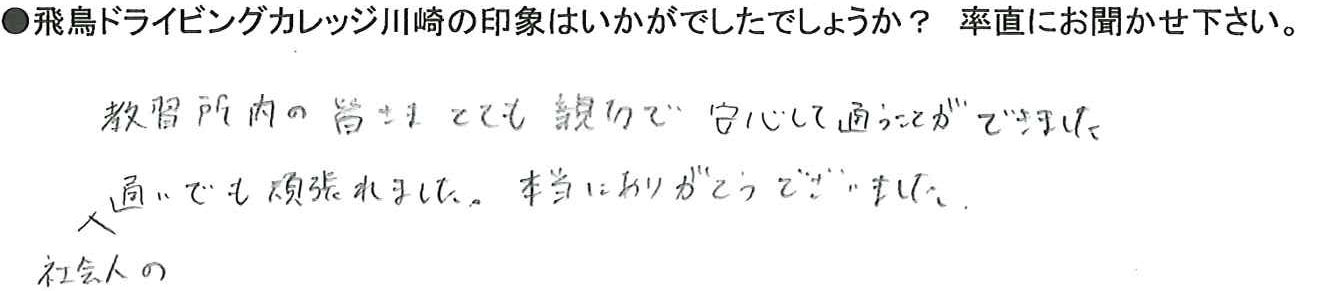 ●飛鳥ドライビングカレッジ川崎の印象はいかがでしたでしょうか？ 率直にお聞かせ下さい。
教習所内の皆さま とても 親切で 安心して通うことができました
通いでも頑張れました。本当にありがとうございました.
社会人の